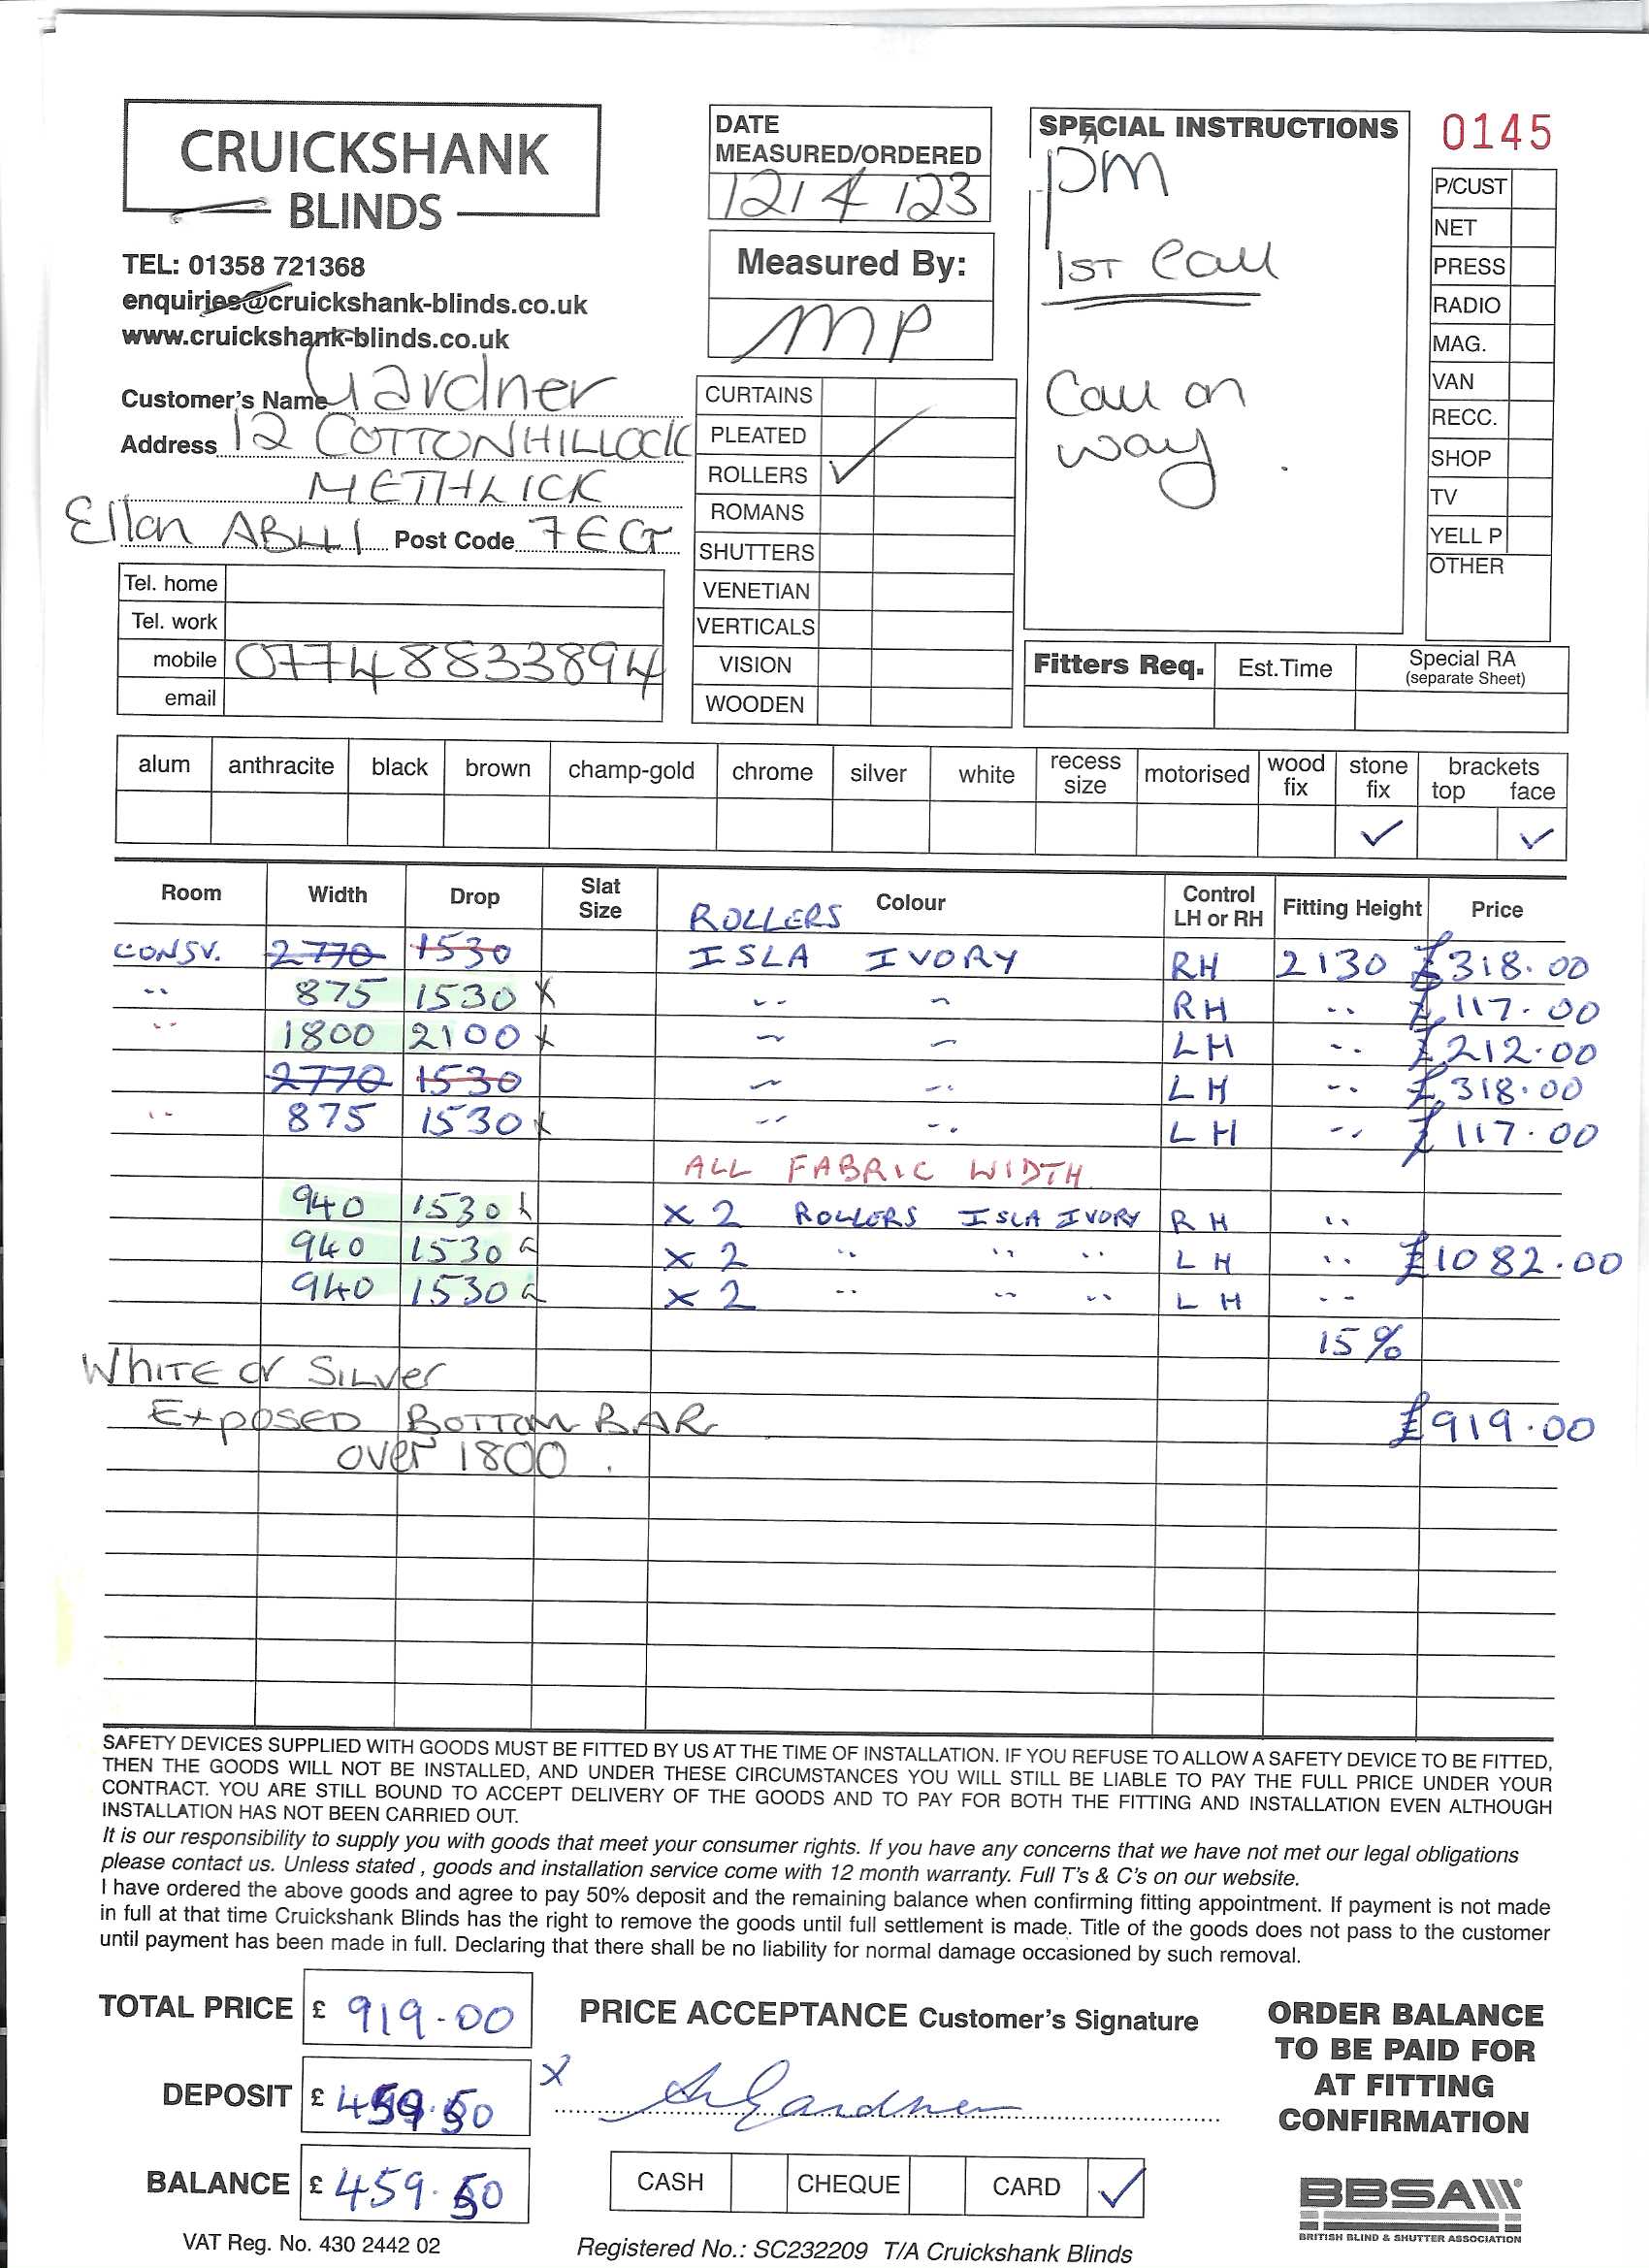 CRUICKSHANK
BLINDS
TEL: 01358 721368
enquiries@cruickshank-blinds.co.uk
www.cruickshank-blinds.co.uk
Customer's Name Gardner
Address 12 COTTONHILLOCK
METHLICK
Ellon AB41 Post Code 7EG
Tel. home
Tel. work
mobile 07748833894
email
DATE
MEASURED/ORDERED
12/4/23
Measured By:
MP
CURTAINS
PLEATED
ROLLERS ✓
ROMANS
SHUTTERS
VENETIAN
VERTICALS
VISION
WOODEN
SPECIAL INSTRUCTIONS
pm
1ST Call
Call on
way.
0145
P/CUST
NET
PRESS
RADIO
MAG.
VAN
RECC.
SHOP
TV
YELL P
OTHER
Fitters Req. Est.Time Special RA
(separate Sheet)
alum anthracite black brown champ-gold chrome silver white recess size motorised wood fix stone fix brackets top face
✓ ✓
Room Width Drop Slat Size Colour Control LH or RH Fitting Height Price
ROLLERS
CONSV. 2770 1530 ISLA IVORY RH 2130 £318.00
" 875 1530 x " " RH " £117.00
" 1800 2100 x " " LH " £212.00
2770 1530 " " LH " £318.00
" 875 1530 x " " LH " £117.00
ALL FABRIC WIDTH
940 1530 x 2 ROLLERS ISLA IVORY RH "
940 1530 x 2 " " " LH " £1082.00
940 1530 x 2 " " " LH "
15%
WHITE or SILVER
EXPOSED BOTTOM BAR £919.00
over 1800.
SAFETY DEVICES SUPPLIED WITH GOODS MUST BE FITTED BY US AT THE TIME OF INSTALLATION. IF YOU REFUSE TO ALLOW A SAFETY DEVICE TO BE FITTED,
THEN THE GOODS WILL NOT BE INSTALLED, AND UNDER THESE CIRCUMSTANCES YOU WILL STILL BE LIABLE TO PAY THE FULL PRICE UNDER YOUR
CONTRACT. YOU ARE STILL BOUND TO ACCEPT DELIVERY OF THE GOODS AND TO PAY FOR BOTH THE FITTING AND INSTALLATION EVEN ALTHOUGH
INSTALLATION HAS NOT BEEN CARRIED OUT.
It is our responsibility to supply you with goods that meet your consumer rights. If you have any concerns that we have not met our legal obligations
please contact us. Unless stated , goods and installation service come with 12 month warranty. Full T's & C's on our website.
I have ordered the above goods and agree to pay 50% deposit and the remaining balance when confirming fitting appointment. If payment is not made
in full at that time Cruickshank Blinds has the right to remove the goods until full settlement is made. Title of the goods does not pass to the customer
until payment has been made in full. Declaring that there shall be no liability for normal damage occasioned by such removal.
TOTAL PRICE £ 919.00
DEPOSIT £ 459.50
BALANCE £ 459.50
PRICE ACCEPTANCE Customer's Signature
x Gardner
CASH CHEQUE CARD ✓
ORDER BALANCE
TO BE PAID FOR
AT FITTING
CONFIRMATION
BBSA
BRITISH BLIND & SHUTTER ASSOCIATION
VAT Reg. No. 430 2442 02
Registered No.: SC232209 T/A Cruickshank Blinds